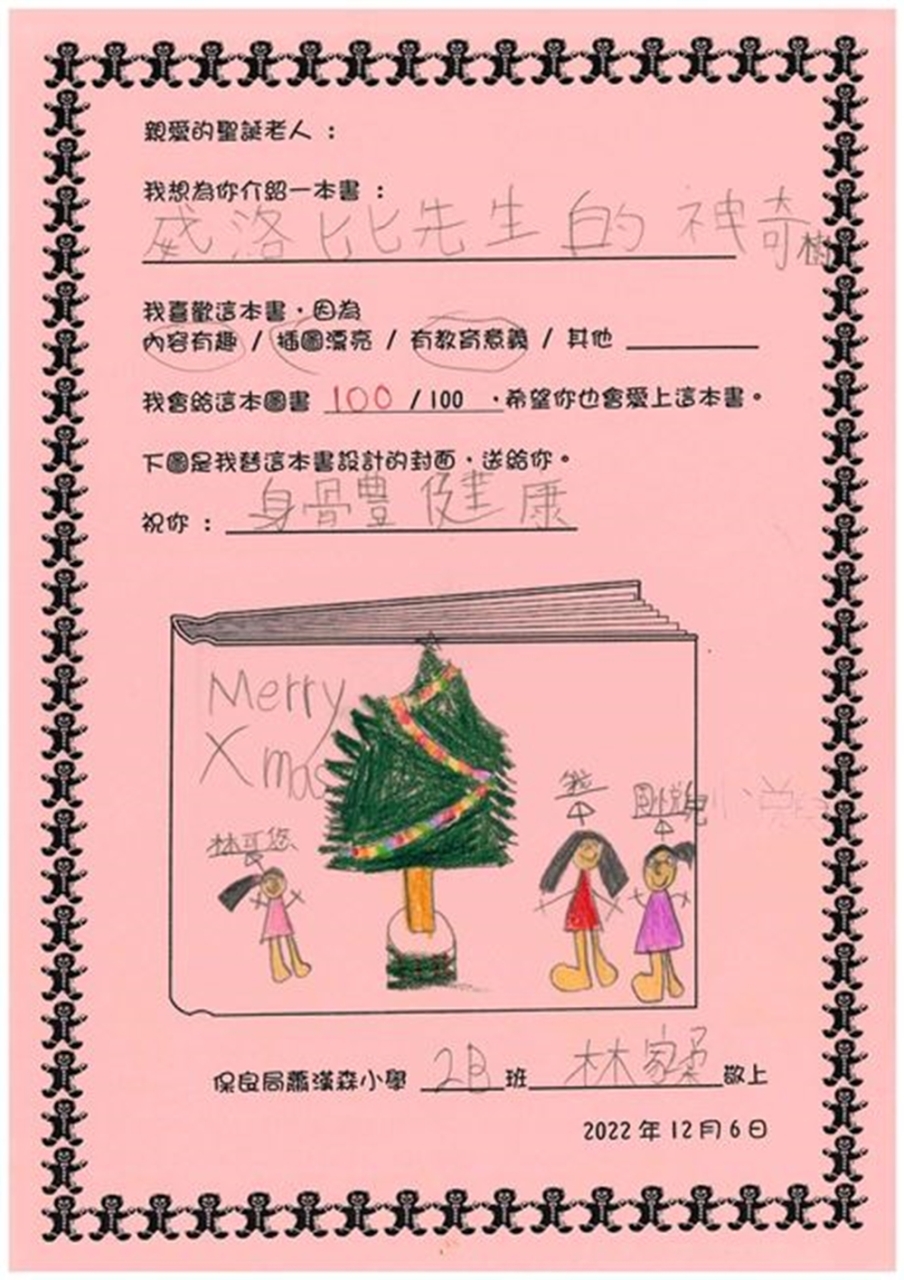 親愛的聖誕老人：
我想為你介紹一本書：
威洛比先生的神奇樹
我喜歡這本書，因為
內容有趣 / 插圖漂亮 / 有教育意義 / 其他
我會給這本圖書 100 / 100 ，希望你也會愛上這本書。
下圖是我替這本書設計的封面，送給你。
祝你：身體健康
Merry
Xmas
林可悠
保良局蕭漢森小學 2B 班 林家柔 敬上
2022 年 12 月 6 日